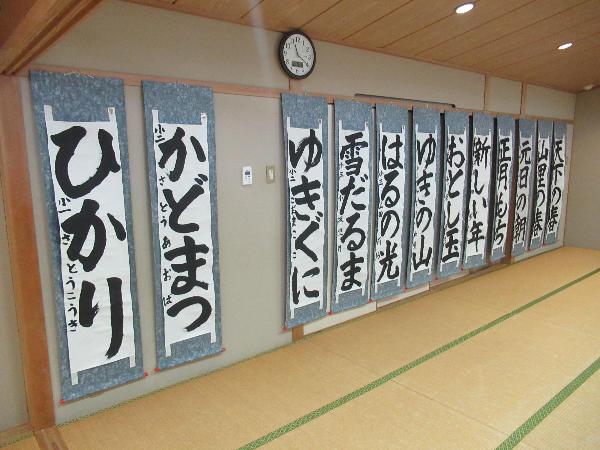 ひかり
小一 さとうこうき
かどまつ
小二 さとうあおば
ゆきぐに
雪だるま
はるの光
ゆきの山
おとし玉
新しい年
正月もち
元日の朝
山里の春
天下の春